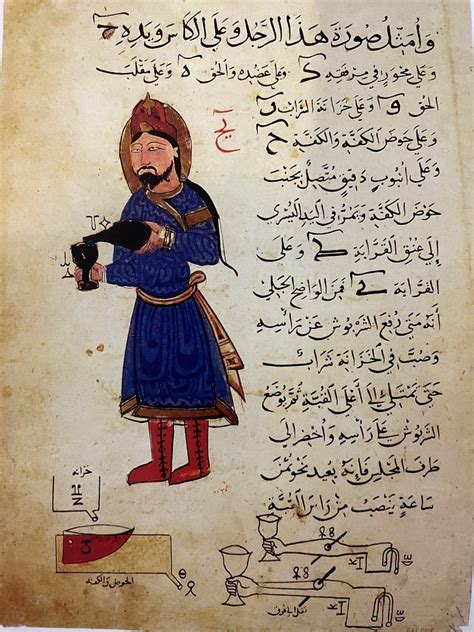 وأمثل صورة هذا الرجل وعلى الكاس وبده
وعلى محور في مرفقه ك وعلى عضده والحق ه وعلى مقلب
الحق و وعلى خزانة الشراب
وعلى حوض الكفة والكفة ح
وعلى أنبوب دقيق متصل بجنب
حوض الكفة ويمر في اليد اليسرى
إلى عنق القرابة وعلى
القرابة فمن الواضح الجلي
أنه متى رفع الشربوش عن راسه
وصب في الخزانة شراب
حتى تمتلي إلا أعلى القبة ثم يوضع
الشربوش على راسه وأحضر إلى
طرف المجلس فإنه بعيد نحو ثمن
ساعة ينصب من راس
خزانه
الحوض والكفه